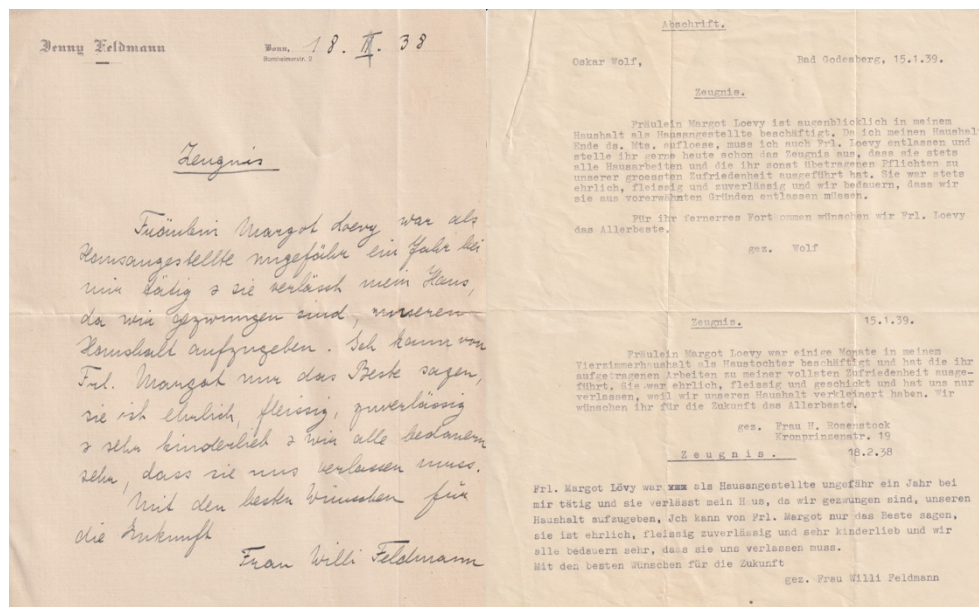 Jenny Feldmann
Bonn, 18. II. 38
Zeugnis
Fräulein Margot Loevy war als
Hausangestellte ungefähr ein Jahr bei
mir tätig & sie verlässt mein Haus,
da wir gezwungen sind, unseren
Haushalt aufzugeben. Ich kann von
Frl. Margot nur das Beste sagen,
sie ist ehrlich, fleissig, zuverlässig
& sehr kinderlieb & wir alle bedauern
sehr, dass sie uns verlassen muss.
Mit den besten Wünschen für
die Zukunft
Frau Willi Feldmann
Abschrift.
Oskar Wolf, Bad Godesberg, 15.1.39.
Zeugnis.
Fräulein Margot Loevy ist augenblicklich in meinem
Haushalt als Hausangestellte beschäftigt. Da ich meinen Haushal
Ende ds. Mts. aufloese, muss ich auch Frl. Loevy entlassen und
stelle ihr gerne heute schon das Zeugnis aus, dass sie stets
alle Hausarbeiten und die ihr sonst übetragenen Pflichten zu
unserer groessten Zufriedenheit ausgeführt hat. Sie war stets
ehrlich, fleissig und zuverlässig und wir bedauern, dass wir
sie aus vorerwähnten Gründen entlassen müssen.
Für ihr fernerres Fortkommen wünschen wir Frl. Loevy
das Allerbeste.
gez. Wolf
Zeugnis. 15.1.39.
Fräulein Margot Loevy war einige Monate in meinem
Vierzimmerhushalt als Haustochter beschäftigt und hat die ihr
aufgetragenen Arbeiten zu meiner vollsten Zufriedenheit ausge-
führt. Sie war ehrlich, fleissig und geschickt und hat uns nur
verlassen, weil wir unseren Haushalt verkleinert haben. Wir
wünschen ihr für die Zukunft das Allerbeste.
gez. Frau H. Rosenstock
Kronprinsenstr. 19
Zeugnis. 18.2.38
Frl. Margot Lövy war xxx als Hausangestellte ungefähr ein Jahr bei
mir tätig und sie verlässt mein H us, da wir gezwungen sind, unseren
Haushalt aufzugeben, Jch kann von Frl. Margot nur das Beste sagen,
sie ist ehrlich, fleissig zuverlässig und sehr kinderlieb und wir
alle bedauern sehr, dass sie uns verlassen muss.
Mit den besten Wünschen für die Zukunft
gez. Frau Willi Feldmann